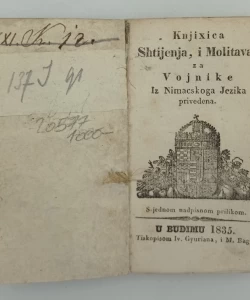 XI. K. j2.
137 J 91
20577
1000-
Knjixica
Shtijenja, i Molitava
za
Vojnike
Iz Nimacskoga Jezika
privedena.
S-jednom nadpisnom prilikom.
U BUDIMU 1835.
Tiskopisom Iv. Gyuriana, i M. Bag